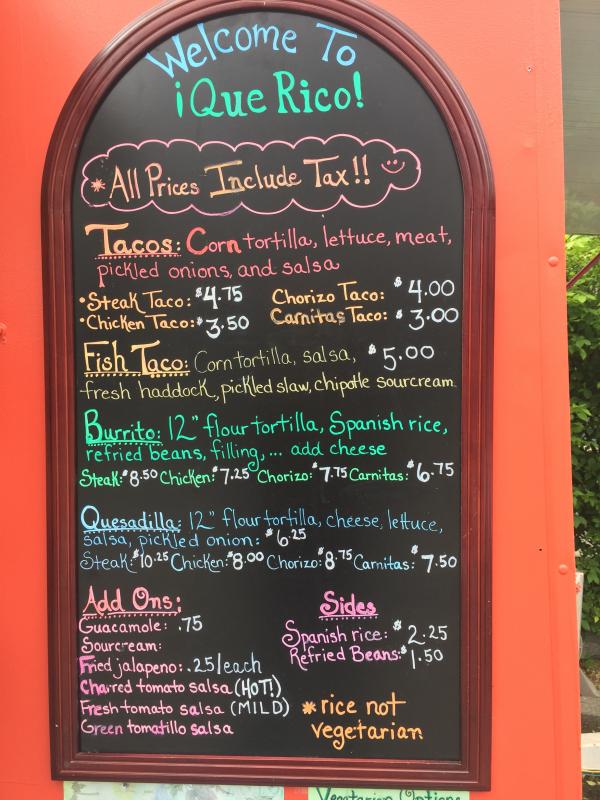 Welcome To
¡Que Rico!
*All Prices Include Tax!!
Tacos: Corn tortilla, lettuce, meat,
pickled onions, and salsa
•Steak Taco: $4.75 Chorizo Taco: $4.00
•Chicken Taco: $3.50 Carnitas Taco: $3.00
Fish Taco: Corn tortilla, salsa, $5.00
fresh haddock, pickled slaw, chipotle sourcream
Burrito: 12" flour tortilla, Spanish rice,
refried beans, filling,... add cheese
Steak: $8.50 Chicken: $7.25 Chorizo: $7.75 Carnitas: $6.75
Quesadilla: 12" flour tortilla, cheese, lettuce,
salsa, pickled onion: $6.25
Steak: $10.25 Chicken: $8.00 Chorizo: $8.75 Carnitas: $7.50
Add Ons:
Guacamole: .75
Sourcream:
Fried jalapeno: .25/each
Charred tomato salsa (HOT!)
Fresh tomato salsa (MILD)
Green tomatillo salsa
Sides
Spanish rice: $2.25
Refried Beans: $1.50
*rice not
vegetarian
Vegetarian Options